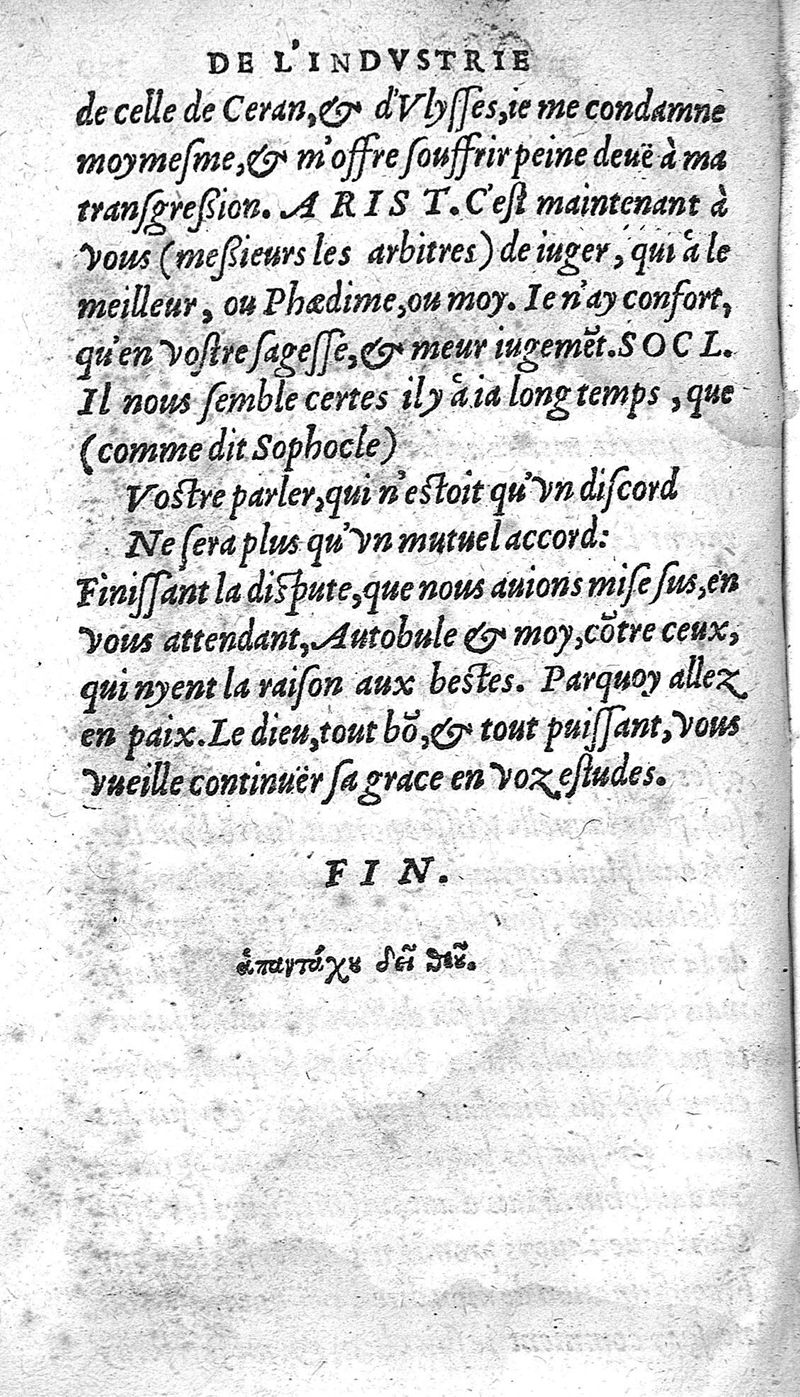 DE L'INDVSTRIE
de celle de Ceran,& d'Vlyſſes,ie me condamne
moymeſme,& m'offre ſouffrir peine deuë à ma
tranſgreßion. ARIST. C'eſt maintenant à
vous (meßieurs les arbitres) de iuger, qui à le
meilleur, ou Phædime,ou moy. Ie n'ay confort,
qu'en voſtre ſageſſe,& meur iugemẽt.SOCL.
Il nous ſemble certes il y à ia long temps, que
(comme dit Sophocle)
Voſtre parler,qui n'eſtoit qu'vn diſcord
Ne ſera plus qu'vn mutuel accord:
Finiſſant la diſpute,que nous auions miſe ſus,en
vous attendant,Autobule & moy,cõtre ceux,
qui nyent la raiſon aux beſtes. Parquoy allez
en paix.Le dieu,tout bõ,& tout puiſſant,vous
vueille continuër ſa grace en voz eſtudes.
FIN.
ἁπανταχȣ δεῖ θεȣ̃.